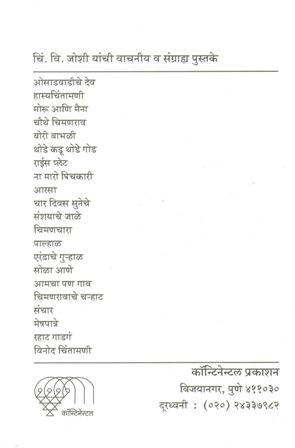 चिं. वि. जोशी यांची वाचनीय व संग्राह्य पुस्तके
ओसाडवाडीचे देव
हास्यचिंतामणी
मोरू आणि मैना
चौथे चिमणराव
बोरी बाभळी
थोडे कडू थोडे गोड
राईस प्लेट
ना मारो पिचकारी
आरसा
चार दिवस सुनेचे
संशयाचे जाळे
चिमणचारा
पाल्हाळ
एरंडाचे गुऱ्हाळ
सोळा आणे
आमचा पण गाव
चिमणरावाचे चऱ्हाट
संचार
मेषपात्रे
रहाट गाडगं
विनोद चिंतामणी
कॉन्टिनेन्टल
कॉन्टिनेन्टल प्रकाशन
विजयानगर, पुणे ४११०३०
दूरध्वनी : (०२०) २४३३७९८२